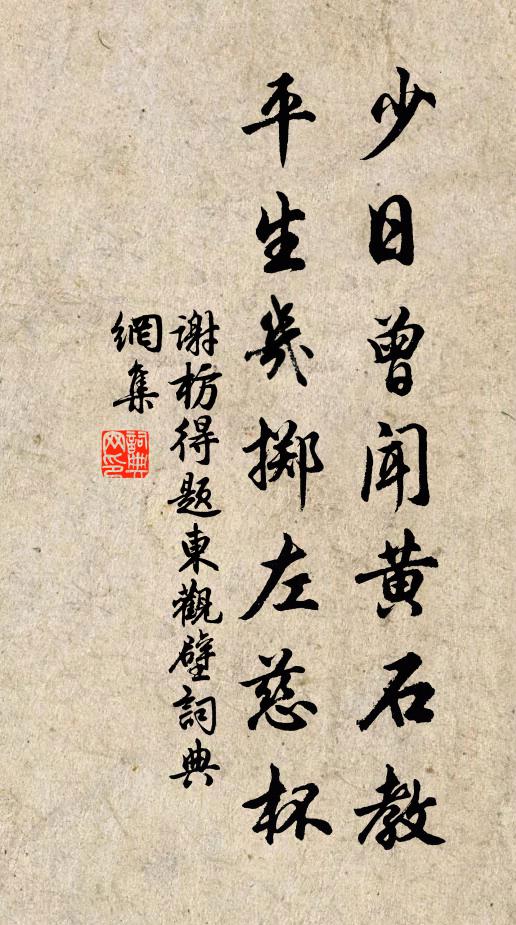 少日曾闻黄石教
平生几掷左慈杯
谢枋得题东觀壁詞典
網集
詞典
网印